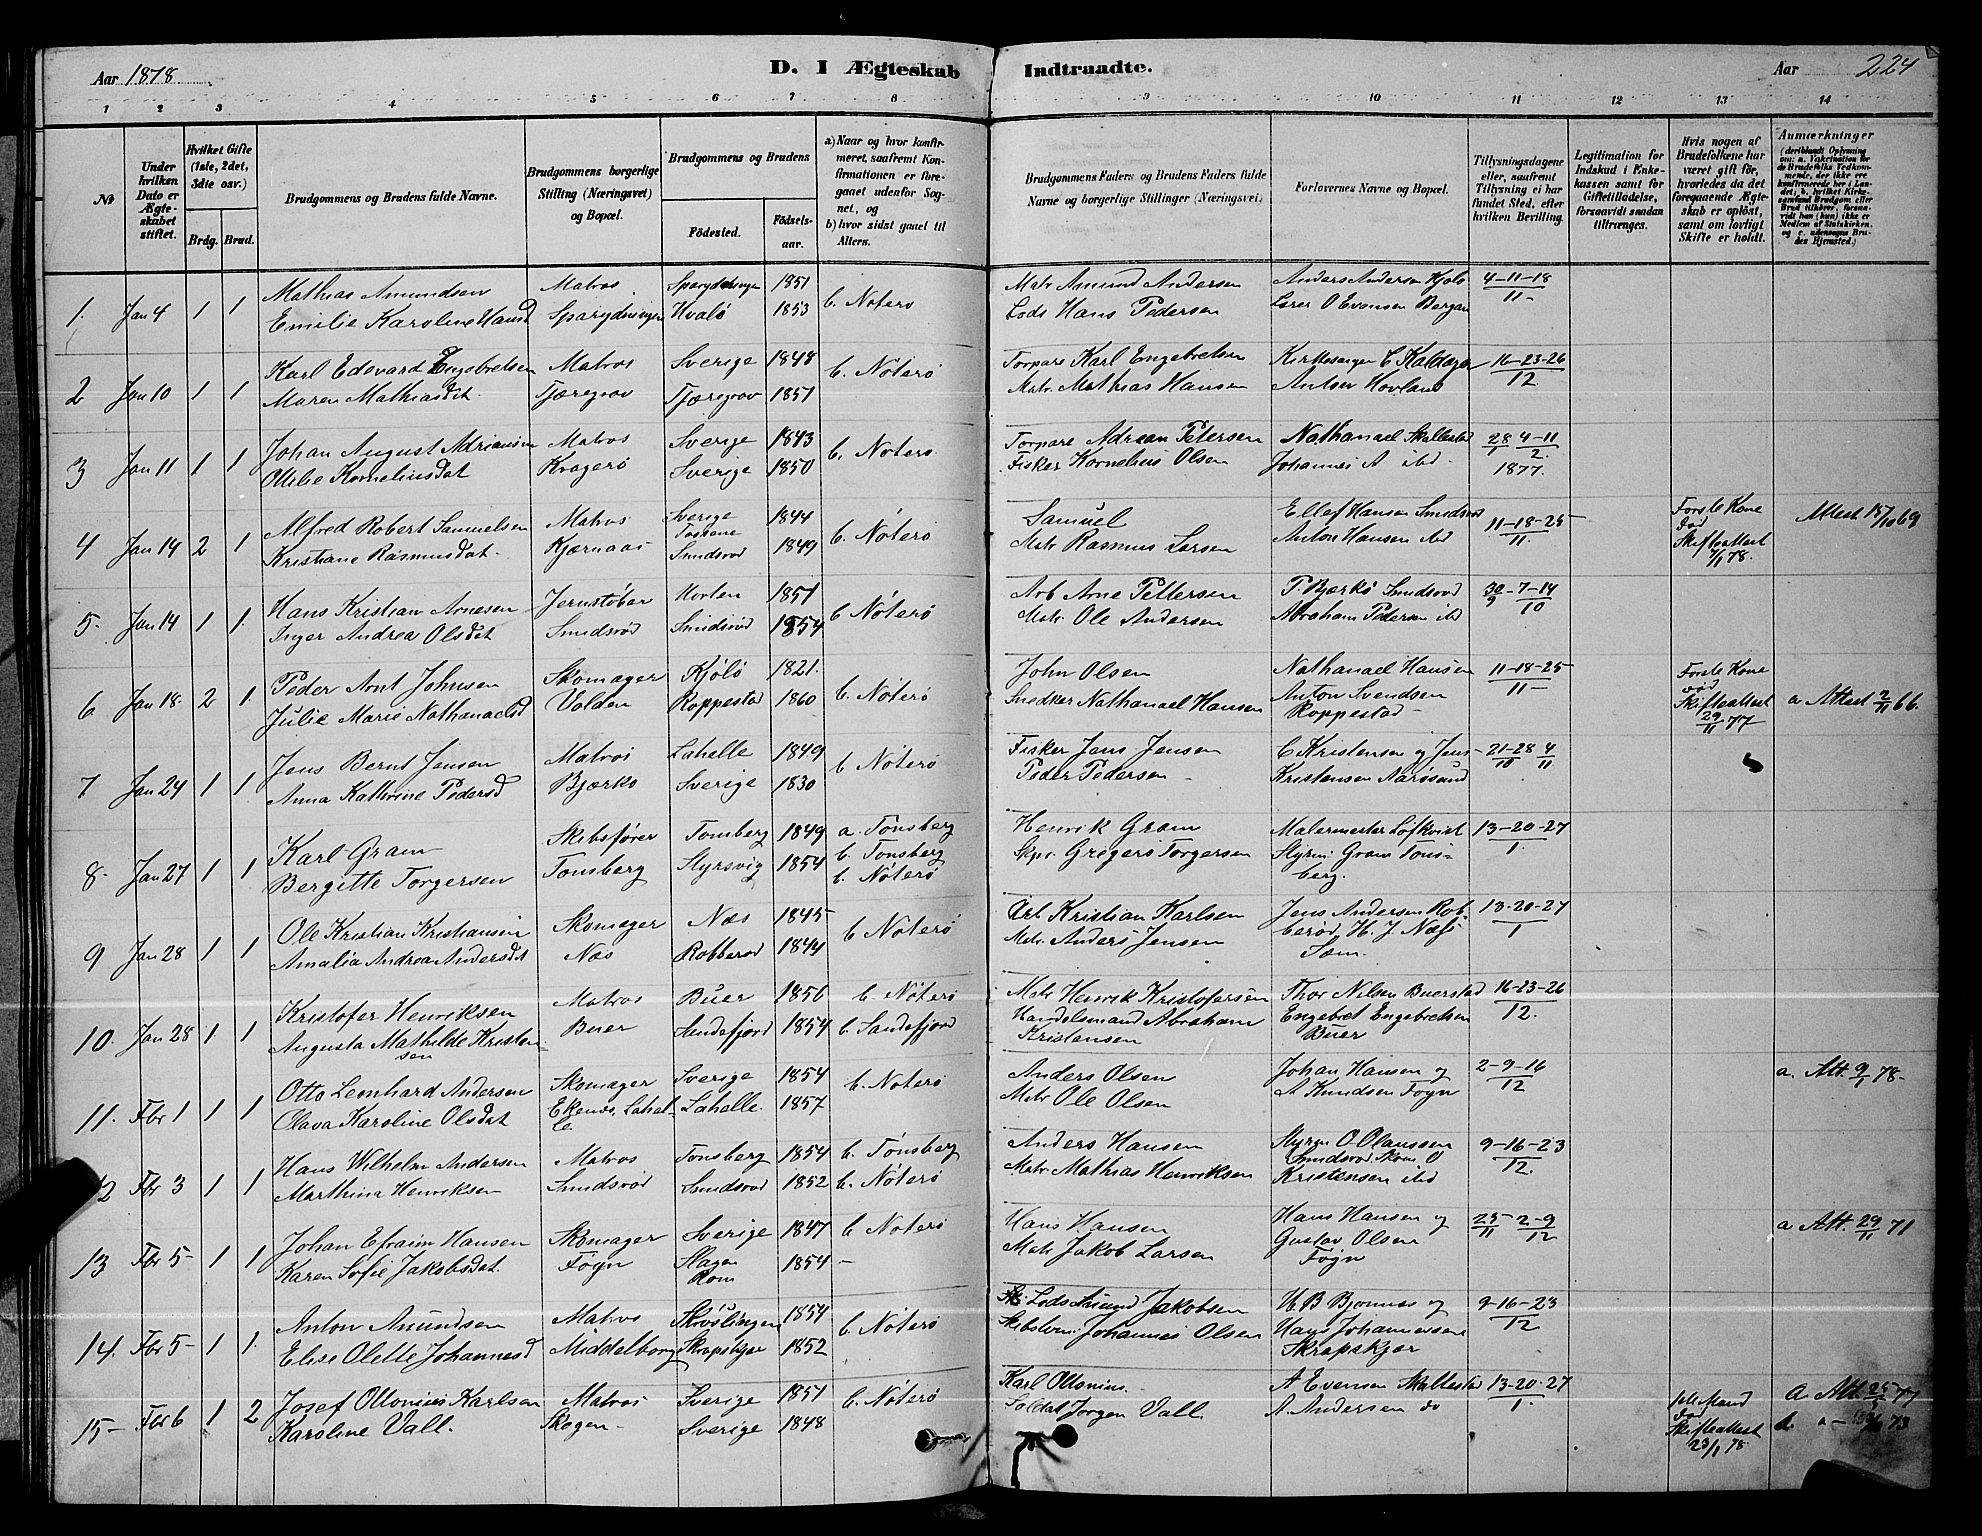 Aar 1878
D. I Ægteskab Indtraadte.
Aar
224
1 2 3 4 5 6 7 8 9 10 11 12 13 14
№
Under hvilken Dato er Ægteskabet stiftet.
Hvilket Gifte (1ste, 2det, 3die osv.)
Brdg. Brud.
Brudgommens og Brudens fulde Navne.
Brudgommens borgerlige Stilling (Næringsvei) og Bopæl.
Brudgommens og Brudens
Fødested.
Fødselsaar.
a) Naar og hvor konfirmeret, saafremt Konfirmationen er foregaaet udenfor Sognet, og
b) hvor sidst ganet til Alters.
Brudgommens Faders og Brudens Faders fulde Navne og borgerlige Stillinger (Næringsvei)
Forlovernes Navne og Bopæl.
Tillysningsdagene eller, saafremt Tillysning ei har fundet Sted, efter hvilken Bevilling.
Legitimation for Indskud i Enkekassen samt for Giftetilladelse, forsaavidt saadan tiltrænges.
Hvis nogen af Brudefolkene har været gift før, hvorledes da det foregaaende Ægteskab er opløst, samt om lovligt Skifte er holdt.
Anmærkninger
1. Jan 4 1 1 Mathias Amundsen Matros 1851 b. Nøterø Matr Amund Andersen Anders Andersen Kjølø 4-11-18
Emilie Karoline Hansd Hvalø 1853 Lods Hans Pedersen Lærer O Evensen Bergan 11-
2 Jan 10 1 1 Karl Edevard Engebretsen Matros Sverige 1848 b. Nøterø Torpare Karl Engebretsen Kirkesanger C Kaldager 16-23-26
Maren Mathiasdt. Tjæregrav Tjæregrav 1851 Matr. Mathias Hansen Antsen Hovland 12
3 Jan 11 1 1 Johan August Adriansen Matros Sverige 1843 b. Nøterø Torpare Adrean Petersen Nathanael Skallestad 28/1 4-11/2
Ottilie Korneliusdat Kragerø Sverige 1850 Fisker Kornelius Olsen Johannes A ibd. 1877.
4 Jan 14 2 1 Alfred Robert Samuelsen Matros Sverige 1844 b. Nøterø Samuel Ellef Hansen Smidsrød 11-18-25 Første Kone død
Kristiane Rasmusdat. Kjærnaas Smidsrød 1849 Matr Rasmus Larsen Anton Hansen ibd 11. Skifteattest 7/1 78. Attest 15/10 69
5- Jan 14 1 1. Hans Kristian Arnesen Jernstøber Horten 1851 b. Nøterø Arb Arne Pettersen P. Bjærkø Smidsrød 30/9-7-14
Inger Andrea Olsdat Smidsrød Smidsrød 1854 Matr. Ole Andersen Abraham Pedersen ibd 10
6 Jan 18. 2 1. Peder Arnt Johnsen Skomager Kjølø 1821. b. Nøterø John Olsen Nathanael Hansen 11-18-25 Første Kone død
Julie Marie Nathanaelsd Volden Roppestad 1860 Snedker Nathanael Hansen Anton Svendsen Roppestad- 11- Skifteattest 29/11 77 a Attest 2/11 66.
7 Jan 24 1 1 Jens Bernt Jensen Matros Lahelle 1849 b Nøterø Fisker Jens Jensen C Kristensen og Jens 21-28 4
Anna Kathrine Pedersd Bjærkø Sverige 1830 Peder Pedersen Kristensen Narøsund 10 11
8- Jan 27 1 1 Karl Gram Skibsfører Tønsberg 1849 a. Tønsberg b. Tønsberg Henrik Gram Malermester Løfkvist 13-20-27
Bergitte Torgersen Tønsberg Styrsvig 1854 b. Nøterø Skpr. Gregers Torgersen Styrm. Gram Tønsberg. 1.
9 Jan 28 1 1 Ole Kristian Kristiansen Skomager Næs 1845 b Nøterø Arb Kristian Karlsen Jens Andersen Robberød, H. J Næss 13-20-27
Amalia Andrea Andersdt Næs Robberød 1844 Matr. Anders Jensen Søm. 1
10. Jan 28 1 1 Kristofer Henriksen Matros Buer 1856 b. Nøterø Matr Henrik Kristofersen Thor Nilsen Buerstad 16-23-26
Augusta Mathilde Kristensen Buer Sandefjord 1854 b. Sandefjord Handelsmand Abraham Kristensen Engebret Engebretsen Buer 12.
11. Fbr 1 1 1 Otto Leonhard Andersen Skomager Sverige 1854 b. Nøterø Anders Olsen Johan Hansen og 2-9-16 a. Att. 9/1 78-
Olava Karoline Olsdat Ekenes, Lahelle Lahelle. 1857 Matr Ole Olsen A Knudsen Føgn 12
12 Fbr 3 1 1 Hans Wilhelm Andersen Matros Tønsberg 1854 b. Tønsberg Anders Hansen Styrm O. Olaussen 9-16-23
Marthina Henriksen Smidsrød Smidsrød 1852 b. Nøterø Matr Mathias Henriksen Smidsrød, Skom. O Kristensen ibd 12.
13 Fbr 5- 1 1 Johan Efraim Hansen Skomager Sverige 1847 b Nøterø Hans Hansen Hans Hansen og 25/11 2-9 a Att. 29/11 71
Karen Sofie Jakobsdat. Føgn Slagen Rom 1854 - Matr Jakob Larsen Gustav Olsen Føgn 12
14. Fbr 5- 1 1. Anton Amundsen Matros Skrøslingen 1854 b. Nøterø Lods Amund Jakobsen H. B Bjønnes og 9-16-23
Elise Olette Johannesd Middelborg Skrapskjær 1852 Johannes Olsen Hans Johannessen Skrapskjær 12
15- Fbr 6 1 2 Josef Ottonius Karlsen Matros Sverige 1851 b. Nøterø Karl Ottonius. A Evensen Skallestad 13-20-27 1ste Mand død a Att. 25/ 77
Karoline Vall. Skogen- Sverige 1848 Soldat Jørgen Vall. A Andersen do 1. Skifteattest 23/1 78 73